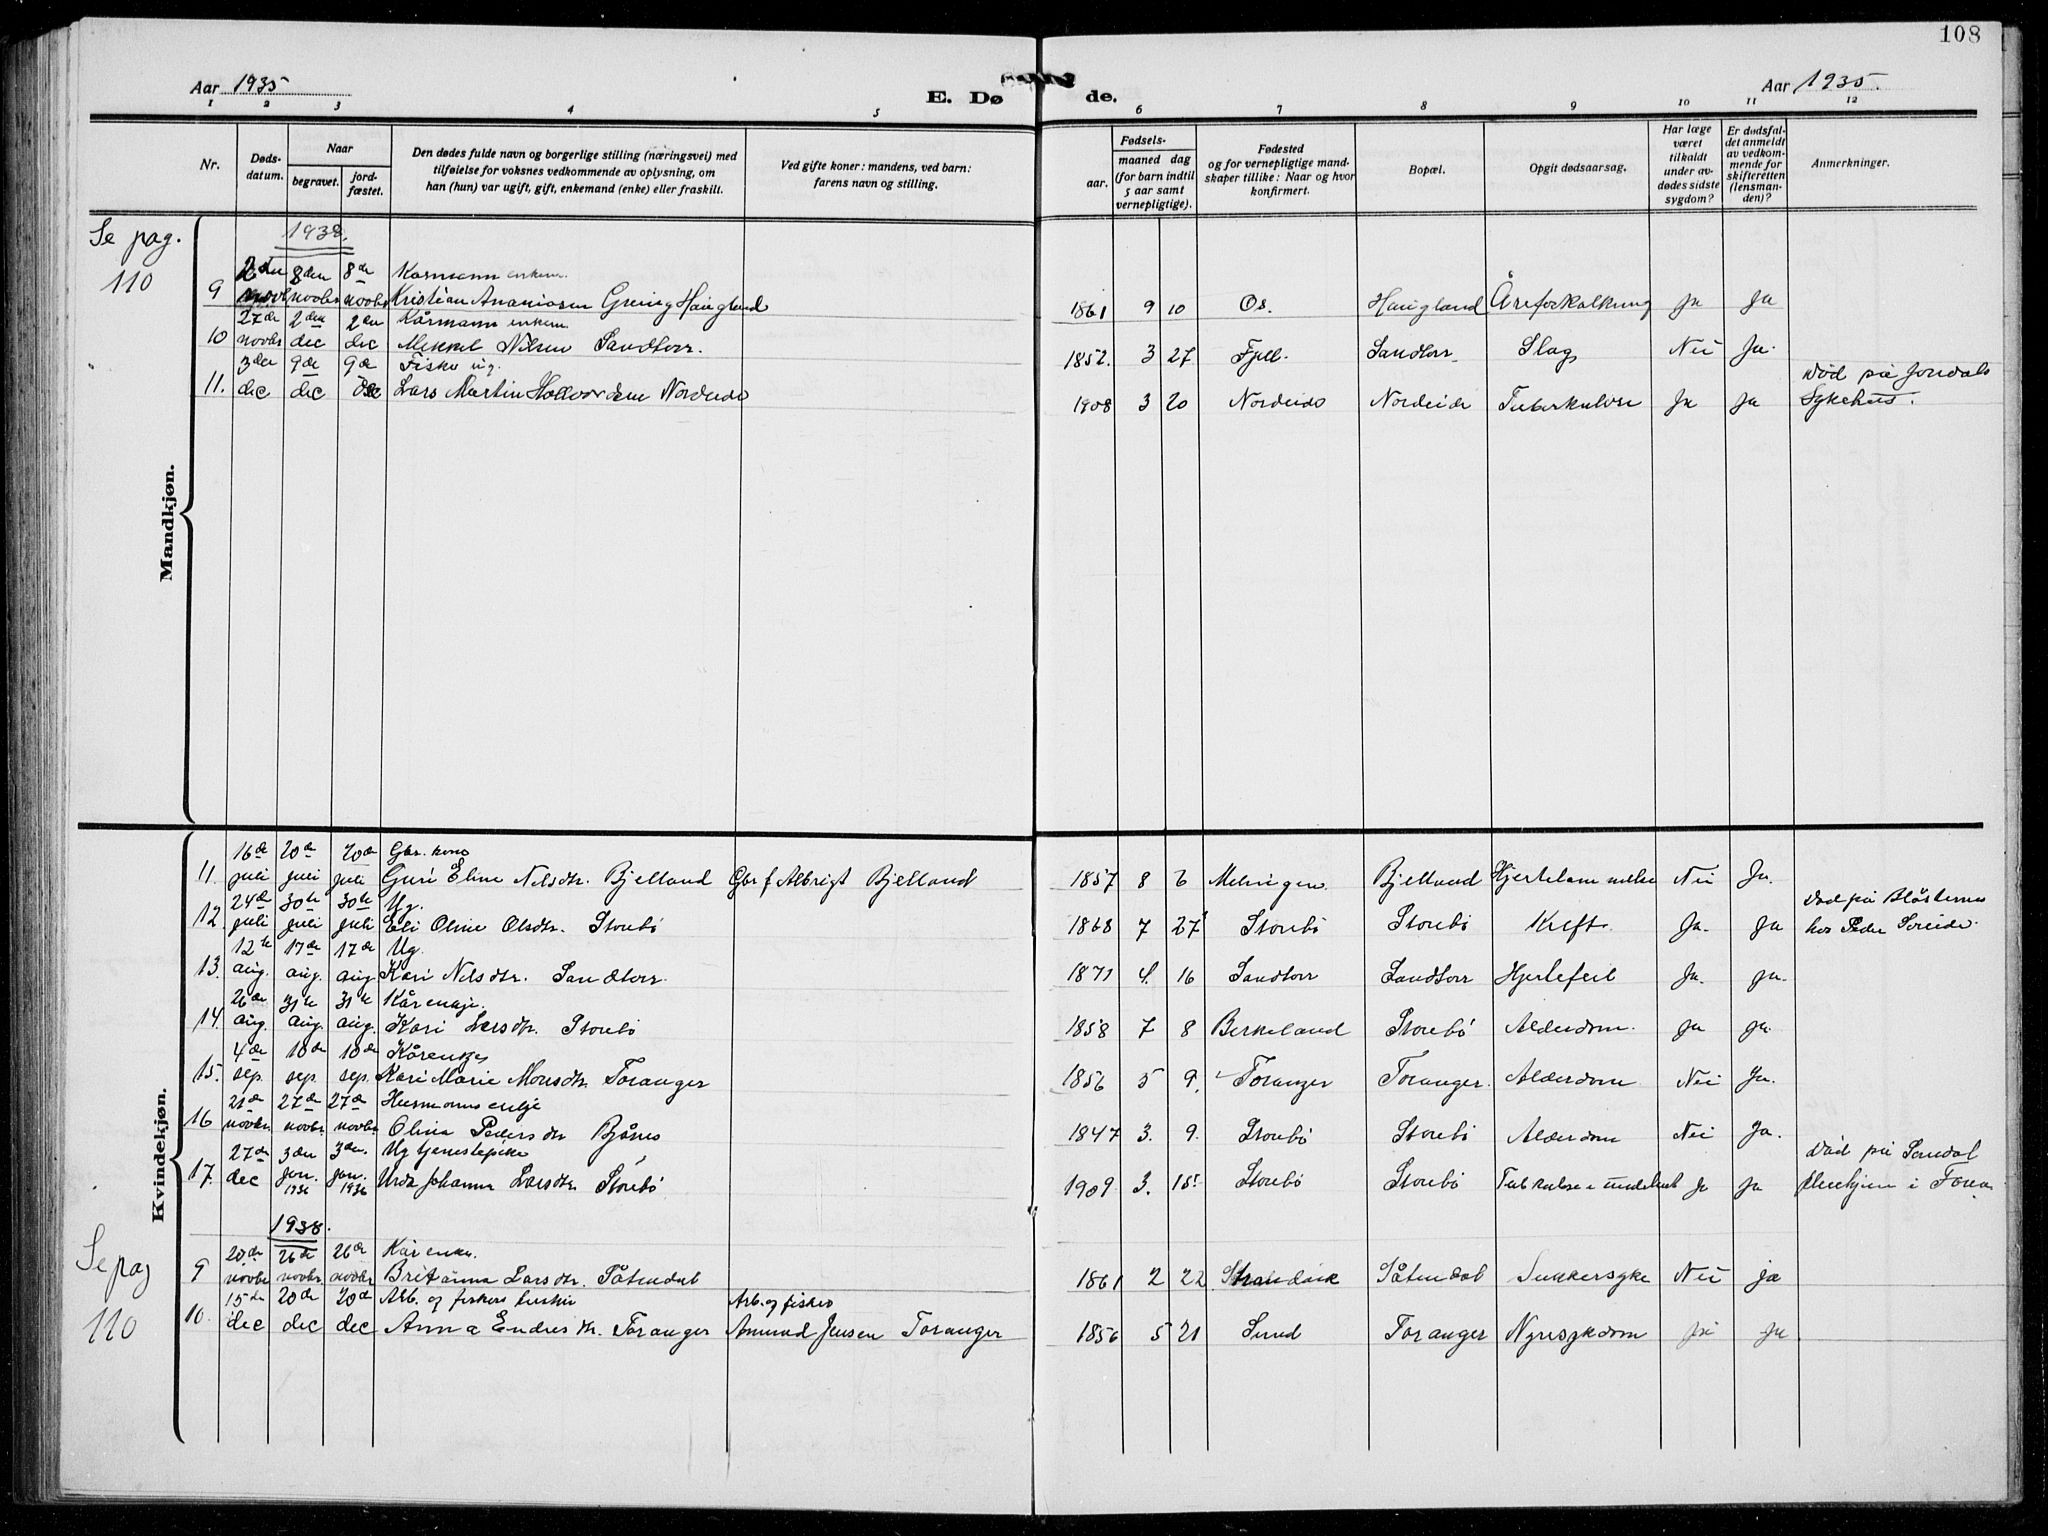 108
Aar 1935
E. Døde.
Aar 1935.
1 2 3 4 5 6 7 8 9 10 11 12
Nr.
Døds-
datum.
Naar
begravet.
jord-
fæstet.
Den dødes fulde navn og borgerlige stilling (næringsvei) med
tilføielse for voksnes vedkommende av oplysning, om
han (hun) var ugift, gift, enkemand (enke) eller fraskilt.
Ved gifte koner: mandens, ved barn:
farens navn og stilling.
Fødsels-
aar.
maaned dag
(for barn indtil
5 aar samt
vernepligtige).
Fødested
og for vernepligtige mand-
skaper tillike: Naar og hvor
konfirmert.
Bopæl.
Opgit dødsaarsag.
Har læge
været
tilkaldt
under av-
dødes sidste
sygdom?
Er dødsfal-
det anmeldt
av vedkom-
mende for
skifteretten
(lensman-
den)?
Anmerkninger.
Se pag.
110
Mandkjøn.
1938.
2den 8den 8de Kårmann enkem.
9 novbr novbr novbr Kristian Ananiasen Greinig Haugland 1861 9 10 Os. Haugland Åreforkalkning Ja Ja
27de 2den 2den Kårmann enkem.
10 novbr dec dec Mikkel Nilsen Sandtorr. 1852. 3 27 Fjell. Sandtorr Slag Nei Ja.
3der 9de 9de Fisker ug.
11. dec dec dec Lars Martin Halvorsen Nordeide 1908 3 20 Nordeide Nordeide Tuberkulose Ja Ja Død på Jondals
Sykehus.
Kvindekjøn.
16de 20de 20de Gbr. kone
11. juli juli juli Guri Eline Nilsdtr. Bjelland Gbr f Albrigt Bjelland 1857 8 6 Melingen Bjelland Hjertelammelse Nei Ja.
24de 30te 30te Ug.
12 juli juli juli Eli Oline Olsdtr. Storebø 1868 7 27 Storebø Storebø Kreft. Ja. Ja Død på
hos Peder
12te 17de 17de Ug.
13. aug. aug. aug Kari Nilsdtr. Sandtorr. 1871 4. 16 Sandtorr Sandtorr Hjertefeil Ja. Ja.
26de 31te 31te Kårenkje.
14. aug. aug. aug. Kari Larsdtr. Storebø 1858 7 8 Birkeland Storebø Alderdom. Ja Ja.
4de 10de 10de Kårenkje
15. sep. sep. sep. Kari Marie Monsdtr. Toranger 1856 5 9. Toranger Toranger. Alderdom Nei Ja.
21de 27de 27de Husmannsenkje
16 novbr. novbr. novbr. Olina Pedersdtr Bjånes 1847 3. 9. Storebø Storebø Alderdom Nei Ja.
27de 3den 3den. Ug tjenestepike
17. dec Jan. 1936 Jan. 1936 Johanna Larsdtr. Storebø 1909 3. 15. Storebø Storebø Ja Ja Død på
i
Se pag
110
1938.
20de 26de 26de Kårenke.
9 novbr novbr novbr Brit Anna Larsdtr. Såtendal 1861 2 22 Strandvik Såtendal Sukkersyke Nei ja
15de 20de 20de Arb. og fiskers hustru Arb. og fisker
10. dec dec dec Anna Endresdtr. Toranger Amund Jensen Toranger 1856 5 21 Sund Toranger Nyresykdom Ja Ja